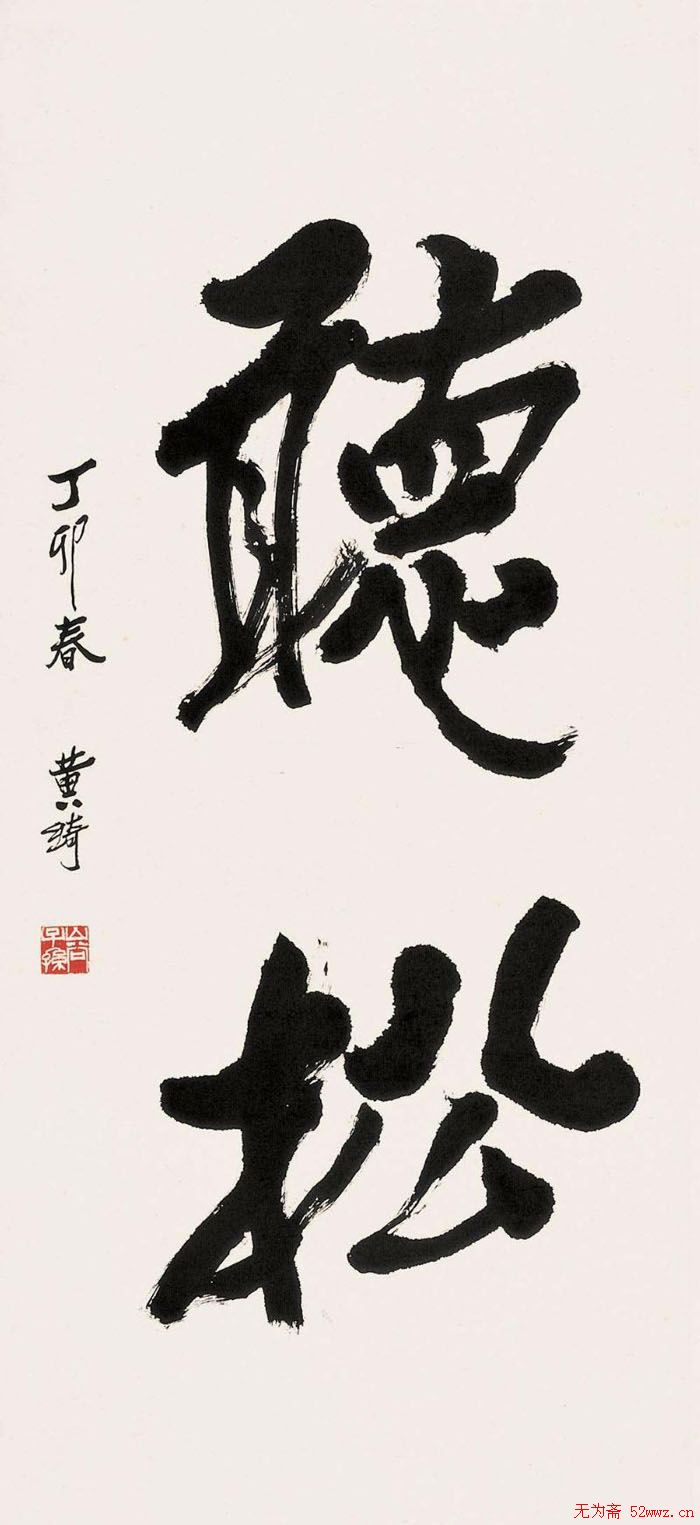 聽松
丁卯春 黄琦
无为斋 52wwz.cn